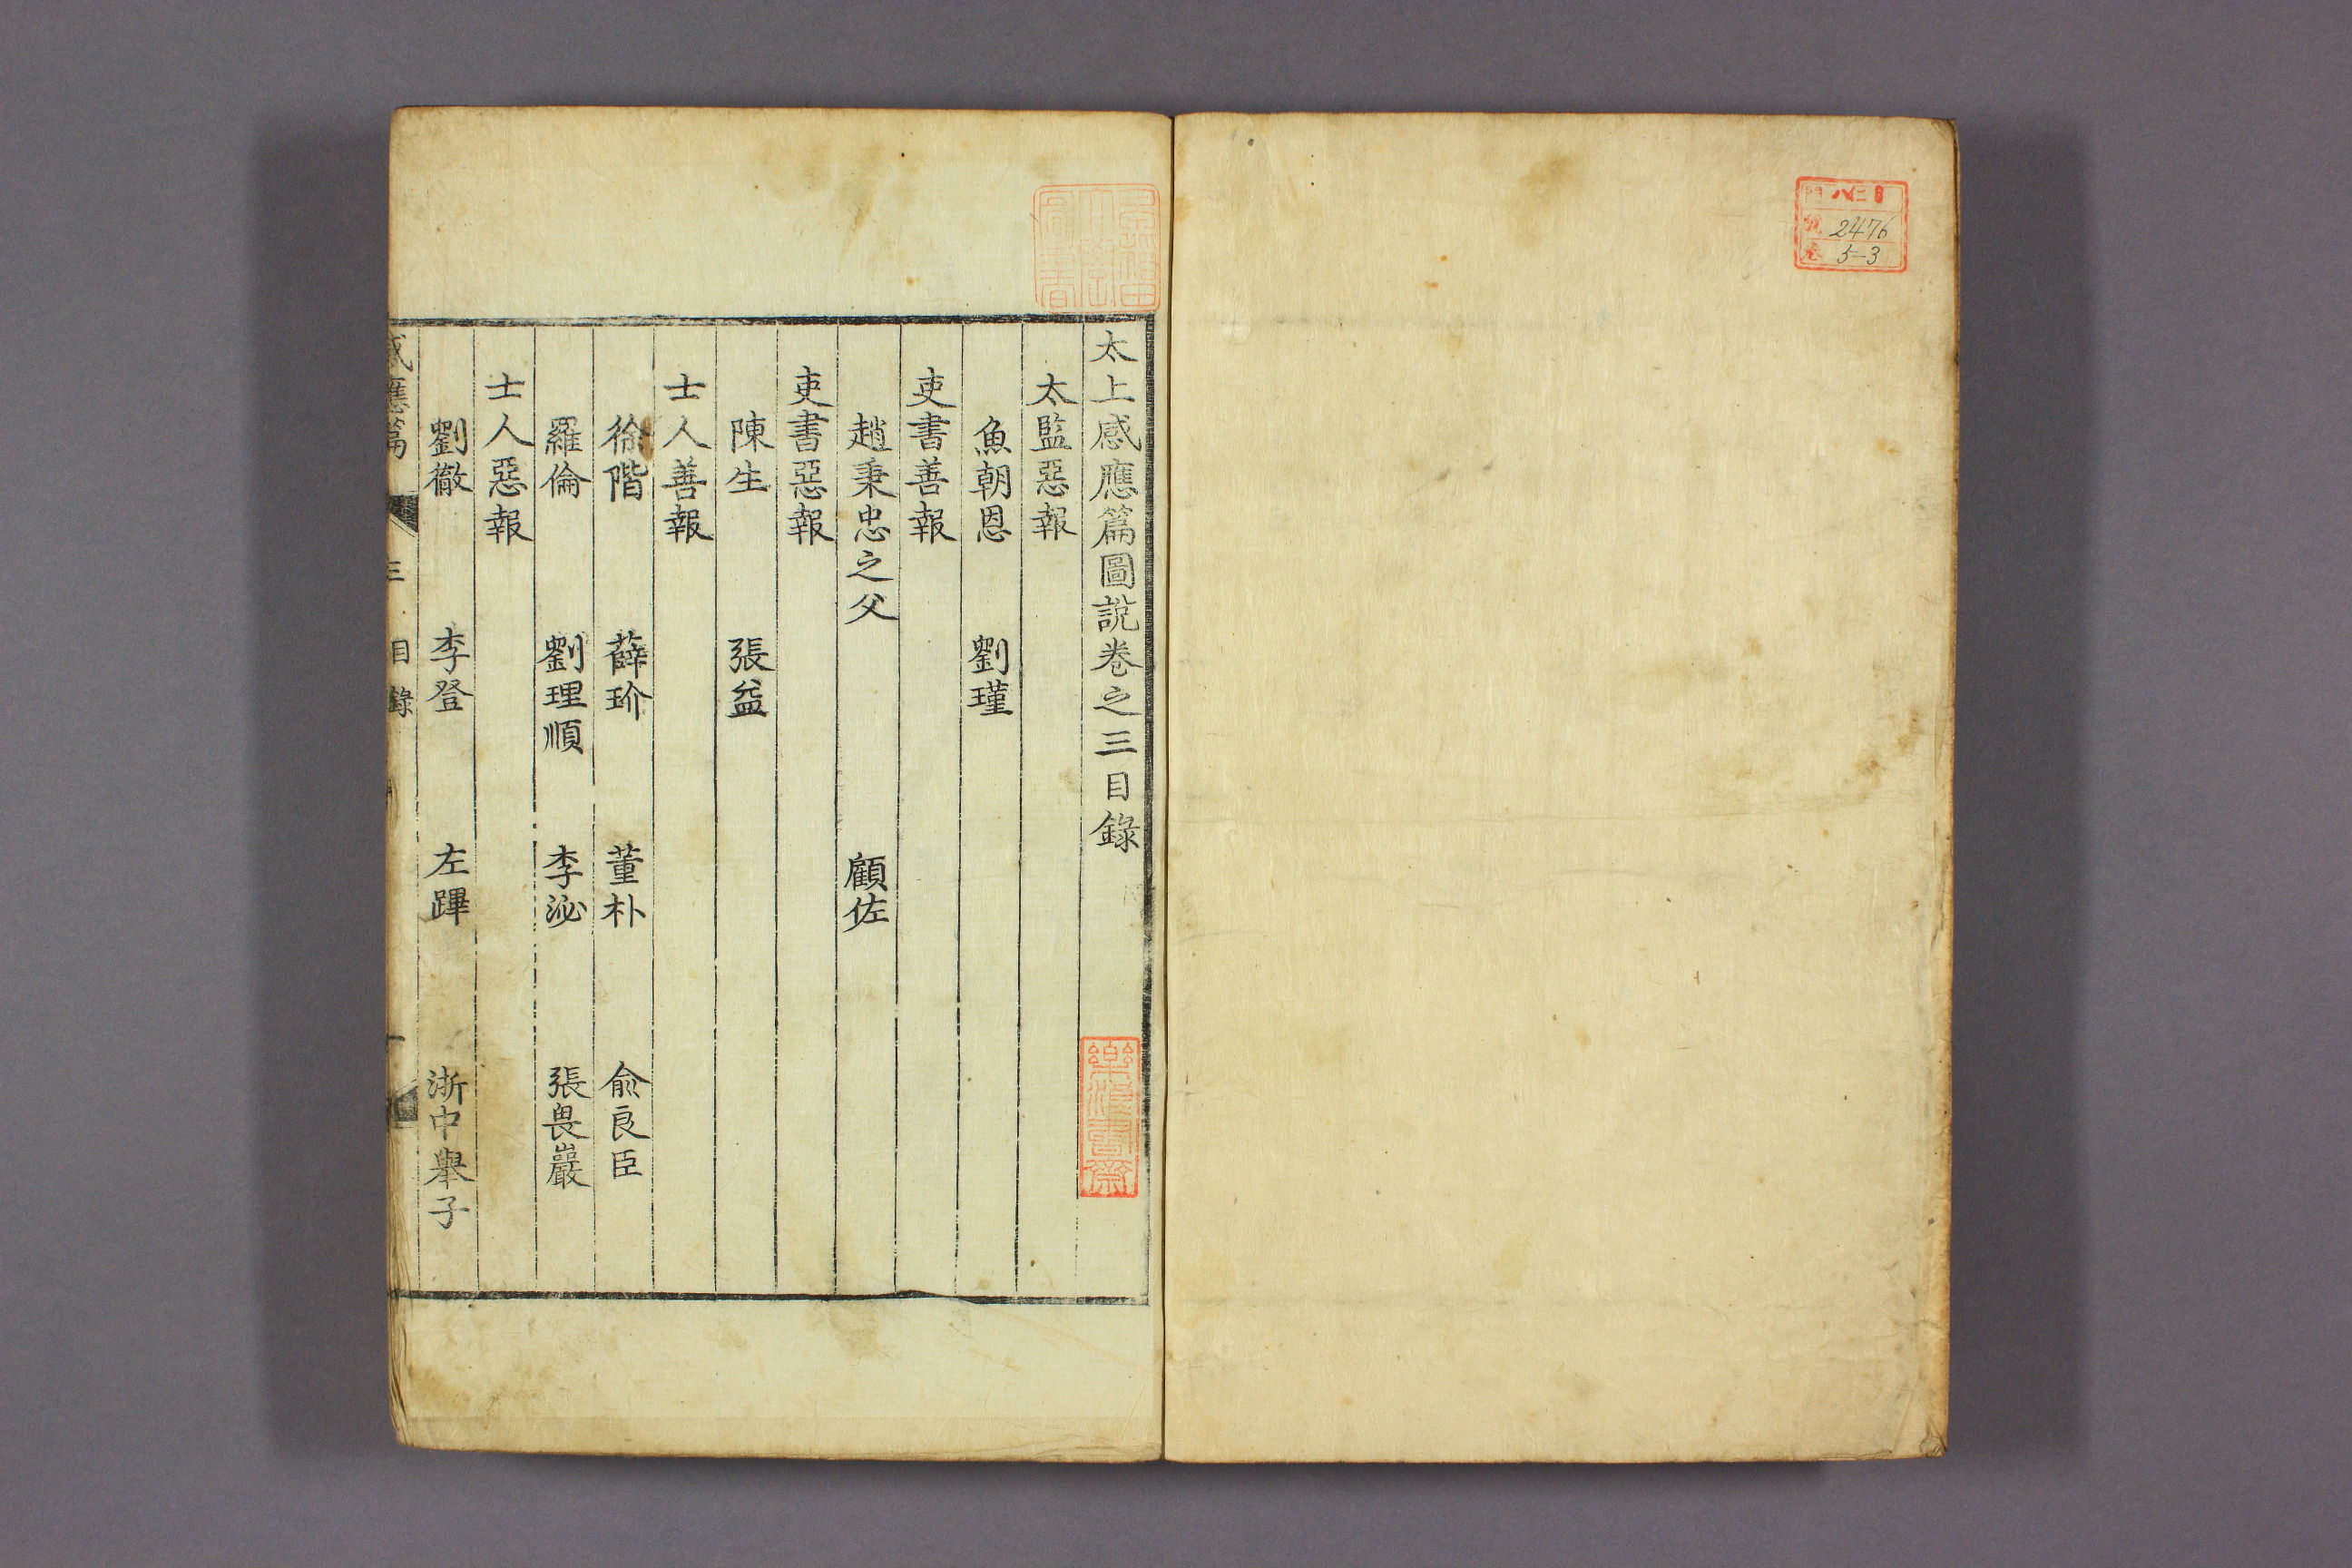 2476
5-3
太上感應篇圖說卷之三目錄
太監惡報
魚朝恩 劉瑾
吏書善報
趙秉忠之父 顧佐
吏書惡報
陳生 張益
士人善報
徐階 薛玠 董朴 俞良臣
羅倫 劉理順 李泌 張畏巖
士人惡報
劉徹 李登 左蹕 浙中舉子
感應篇 三 目錄 一